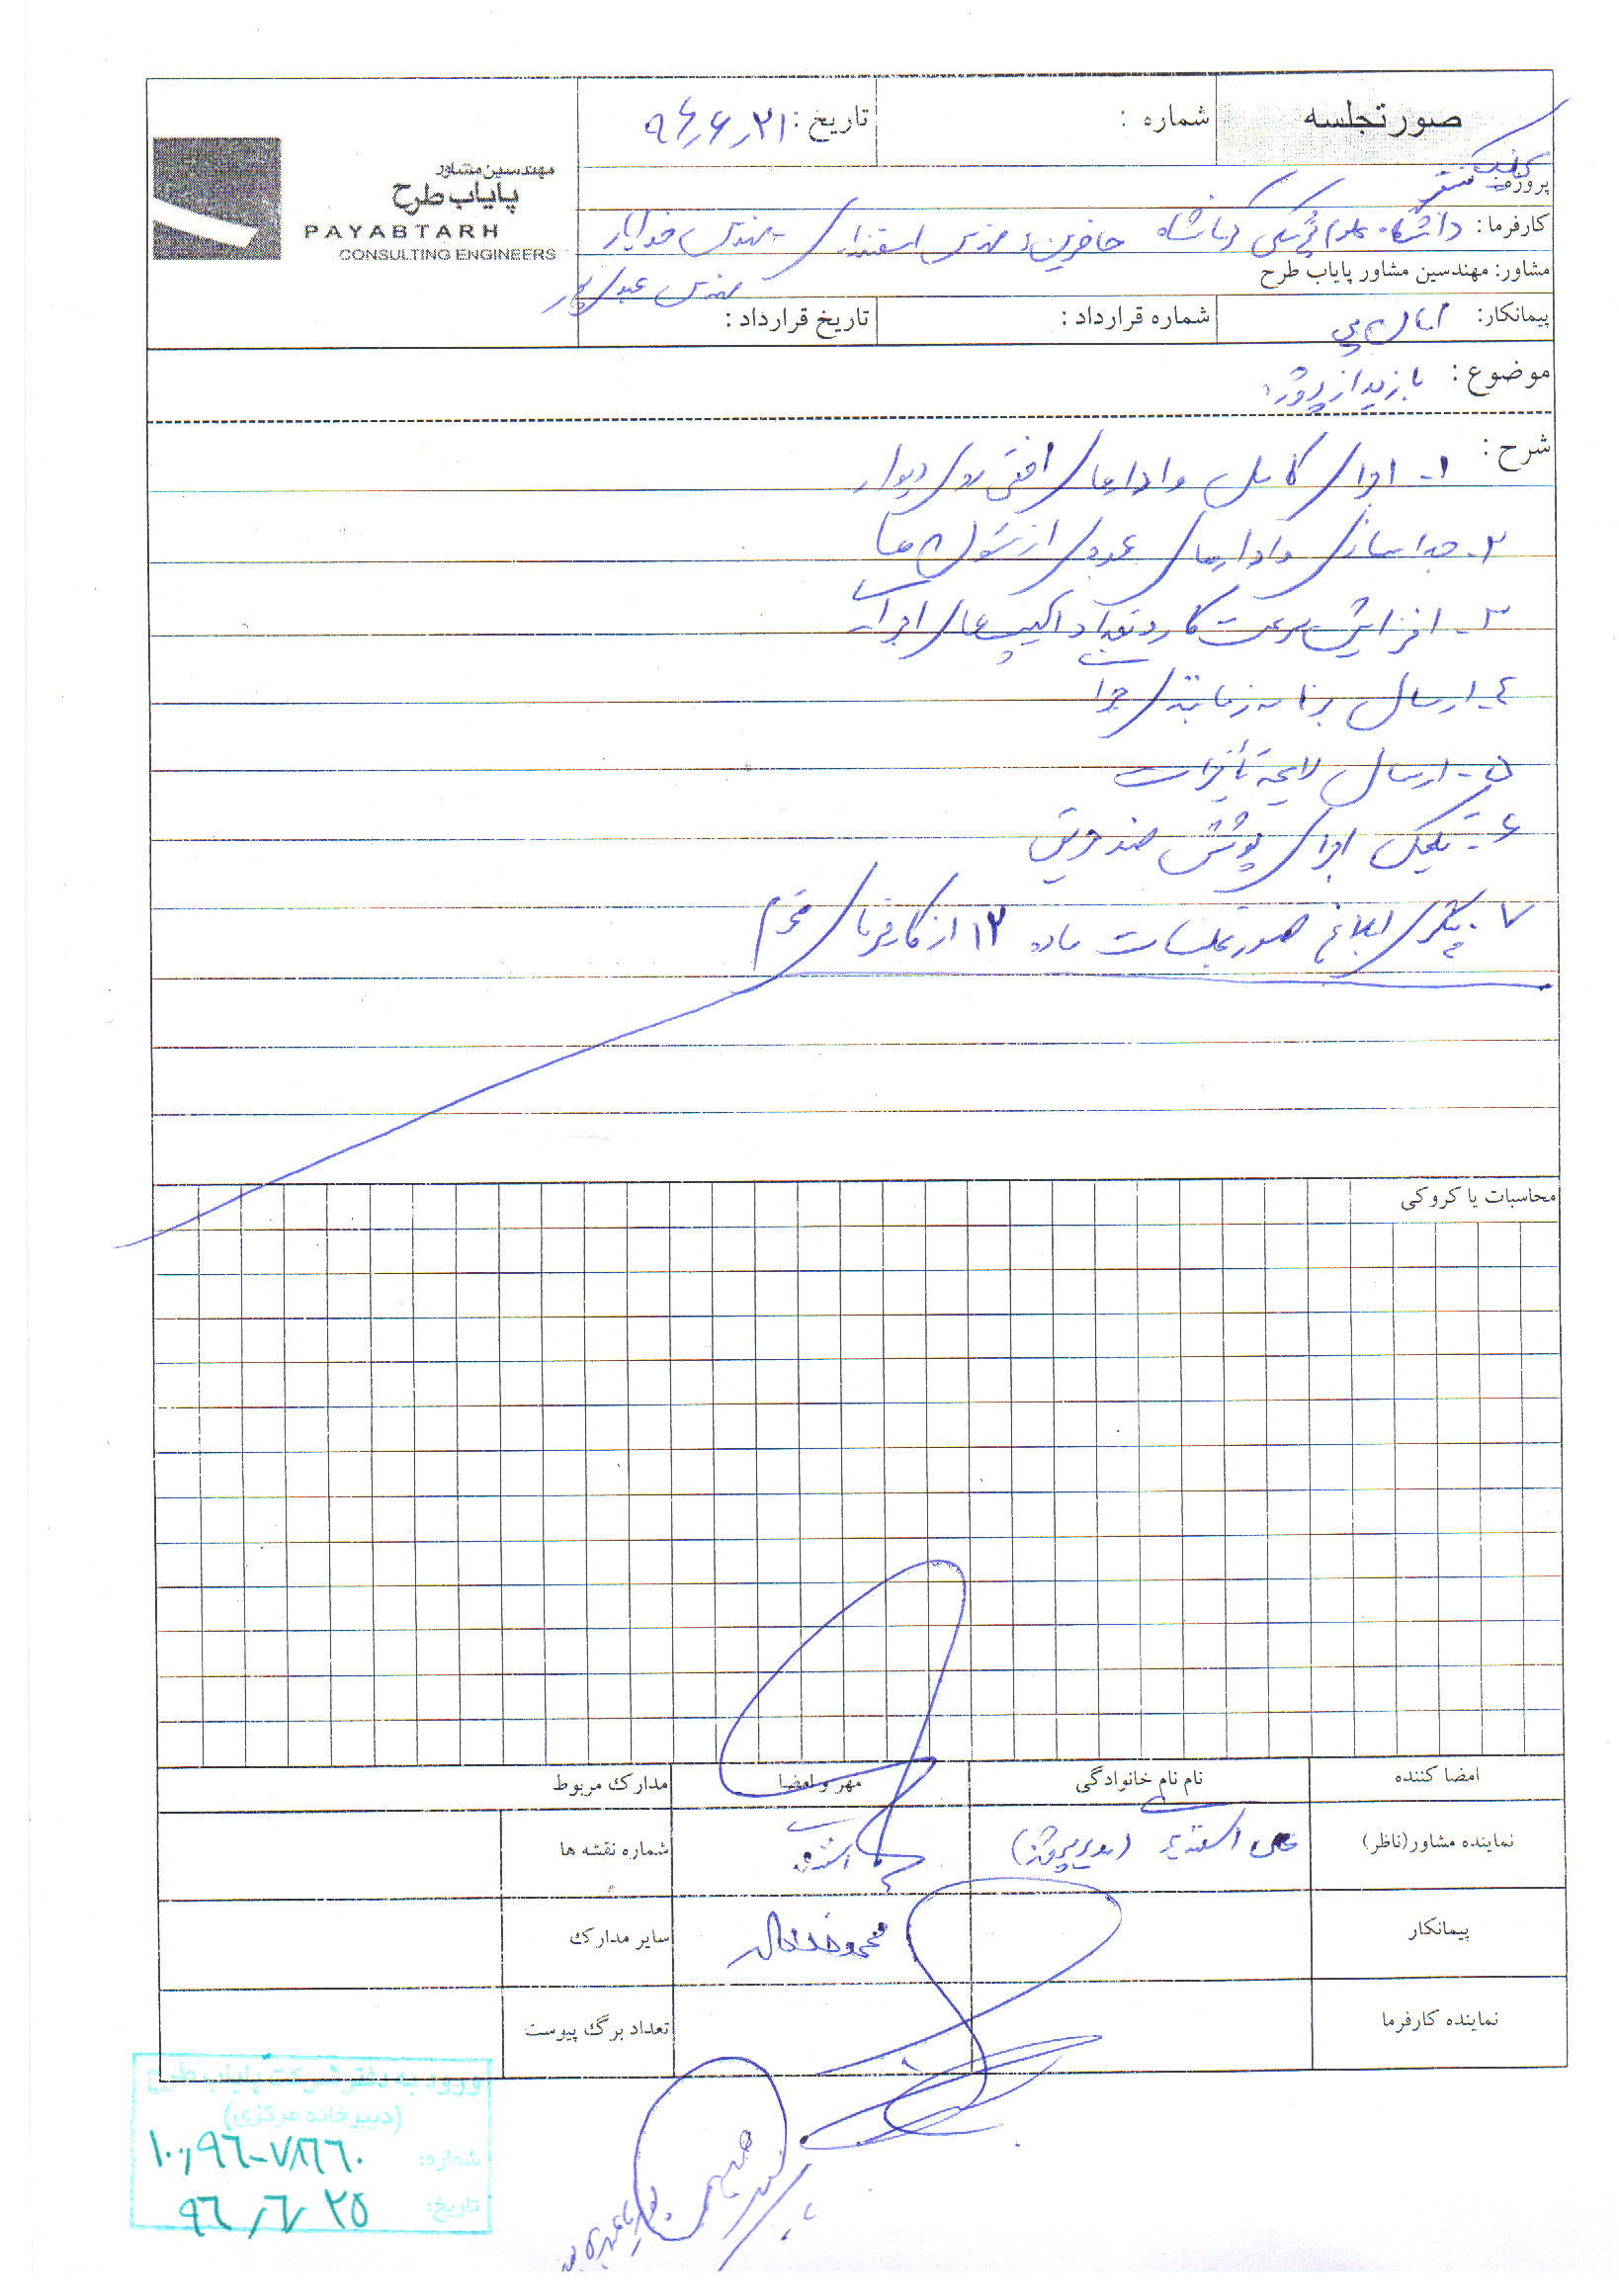 صورتجلسه
شماره :
تاریخ : ۹۶٫۶٫۲۱
مهندسین مشاور
پایاب طرح
PAYABTARH
CONSULTING ENGINEERS
پروژه: کلینیک
کارفرما: دانشگاه علوم پزشکی کرمانشاه حاضرین: مهندس اسفندیاری - مهندس خدایار
مشاور: مهندسین مشاور پایاب طرح
مهندس
پیمانکار:
شماره قرارداد :
تاریخ قرارداد :
موضوع : بازدید از پروژه
شرح :
۱- اجرای کامل وادارهای افقی روی دیوار
۲- جداسازی وادارهای عمودی از ستون ها
۳- افزایش سرعت کار و تعداد اکیپ های اجرایی
٤- ارسال برنامه زمانبندی
۵- ارسال لایحه تأخیرات
۶- تکمیل اجرای پوشش ضد حریق
۷- پیگیری ابلاغ صورتجلسات ماده ۱۲ از کارفرمای محترم
محاسبات یا کروکی
امضا کننده
نام نام خانوادگی
مهر و امضا
مدارک مربوط
نماینده مشاور(ناظر)
(مدیر پروژه)
شماره نقشه ها
پیمانکار
سایر مدارک
نماینده کارفرما
تعداد برگ پیوست
ورود به دفتر شرکت پایاب طرح
(دبیرخانه مرکزی)
شماره:
تاریخ: ۹٦٫٦٫۲۵